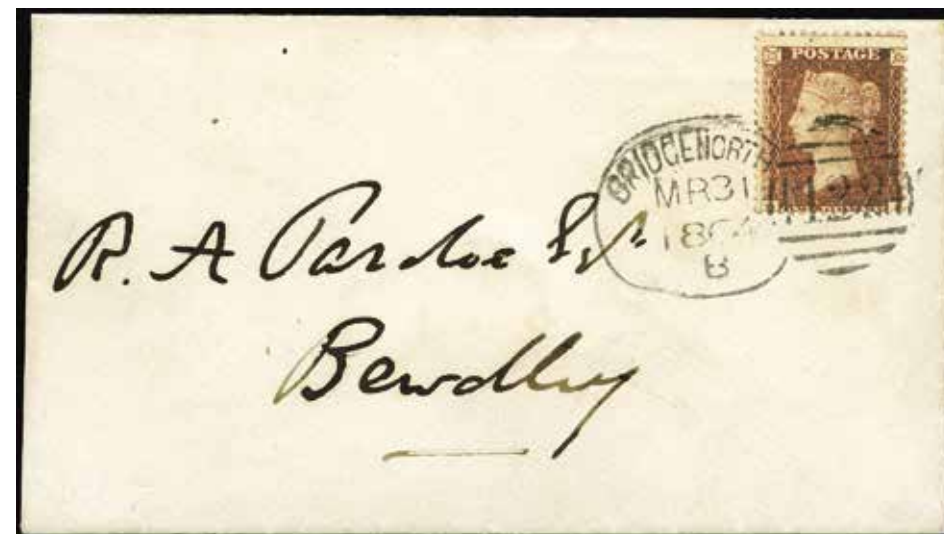 POSTAGE
BRIDGENORTH
MR 31
1864
B
R. A Pardoe Esqr
Bewdley